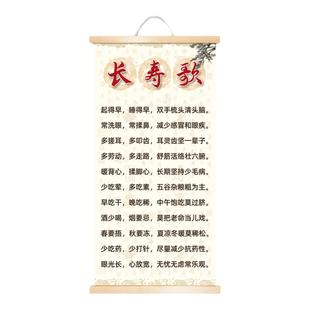 长寿歌
起得早，睡得早，双手梳头清头脑。
常洗眼，常揉鼻，减少感冒和眼疾。
多搓耳，多叩齿，耳灵齿坚一辈子。
多劳动，多走路，舒筋活络壮六腑。
暖背心，揉脚心，长期坚持少毛病。
少吃荤，多吃素，五谷杂粮粗为主。
早吃干，晚吃稀，中午饱吃莫过脐。
酒少喝，烟要忌，莫把老命当儿戏。
春要捂，秋要冻，夏凉冬暖莫稀松。
少吃药，少打针，尽量减少抗药性。
眼光长，心放宽，无忧无虑常乐观。